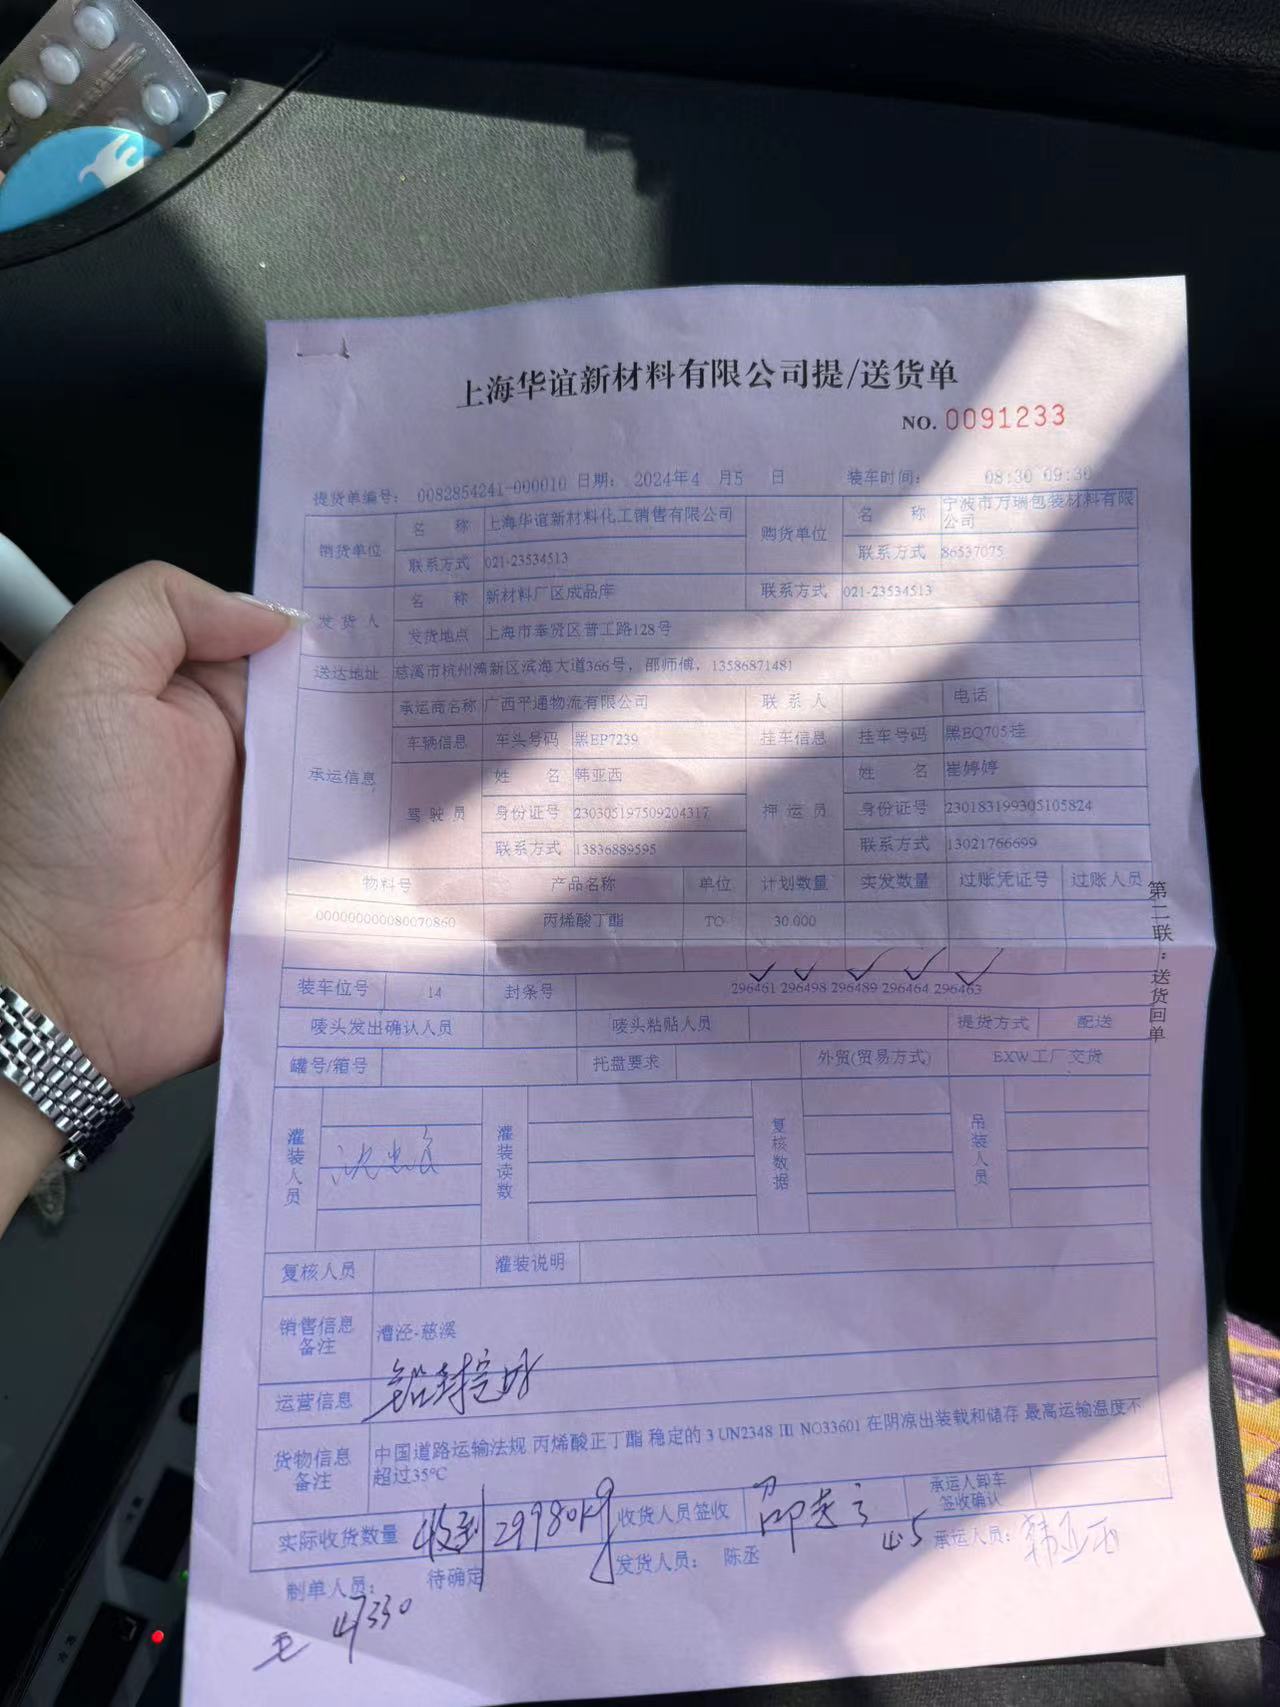 上海华谊新材料有限公司提/送货单
NO. 0091233
提货单编号： 0082854241-000010 日期： 2024年4 月5 日 装车时间： 08:30 09:30
销货单位 名 称 上海华谊新材料化工销售有限公司 购货单位 名 称 宁波市万瑞包装材料有限公司
联系方式 021-23534513 联系方式 86537075
发 货 人 名 称 新材料厂区成品库 联系方式 021-23534513
发货地点 上海市奉贤区普工路128号
送达地址 慈溪市杭州湾新区滨海大道366号，邵师傅，13586871481
承运信息 承运商名称 广西平通物流有限公司 联 系 人 电话
车辆信息 车头号码 黑EP7239 挂车信息 挂车号码 黑EQ705挂
驾 驶 员 姓 名 韩亚西 押 运 员 姓 名 崔婷婷
身份证号 230305197509204317 身份证号 230183199305105824
联系方式 13836889595 联系方式 13021766699
物料号 产品名称 单位 计划数量 实发数量 过账凭证号 过账人员
000000000080070860 丙烯酸丁酯 TO 30.000
装车位号 14 封条号 296461 296498 296489 296464 296463
唛头发出确认人员 唛头粘贴人员 提货方式 配送
罐号/箱号 托盘要求 外贸(贸易方式) EXW工厂交货
灌装人员 灌装读数 复核数据 吊装人员
复核人员 灌装说明
销售信息备注 漕泾-慈溪
运营信息 铅封完好
货物信息备注 中国道路运输法规 丙烯酸正丁酯 稳定的 3 UN2348 III NO33601 在阴凉出装载和储存 最高运输温度不超过35℃
实际收货数量 收到29980kg 收货人员签收 承运人卸车签收确认
4.5
制单人员： 待确定 发货人员： 陈丞 承运人员： 韩亚西
47330
第二联：送货回单